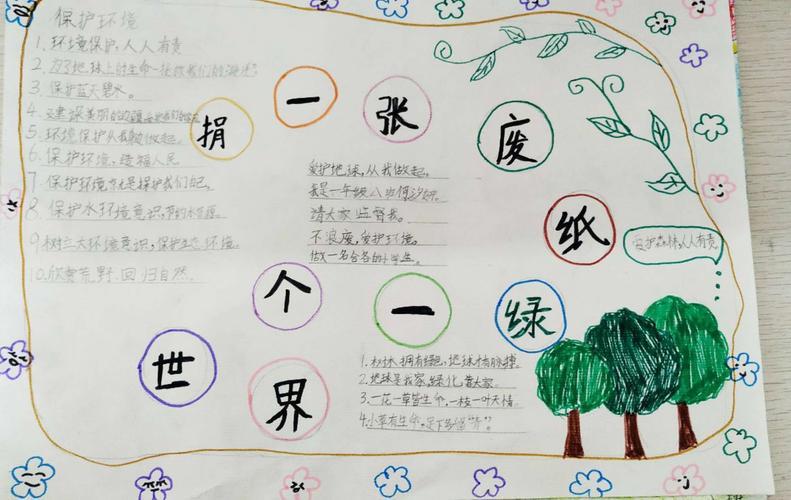 保护环境
1.环境保护,人人有责
2.为了地球上的生命—拯救我们的
3.保护蓝天碧水。
4.建设美丽的
5.环境保护从我做起。
6.保护环境,造福人民
7.保护环境就是保护我们自己。
8.保护水环境意识,节约水资源。
9.树立大环境意识,保护生态环境。
10.欣赏荒野,回归自然。
捐一张废纸
爱护地球,从我做起。
我是一年级八
请大家监督我。
不浪费,爱护环境。
做一名合各的小学生。
爱护森林,人人有责
绿一个世界
1.拥有绿色,地球才有脉搏
2.地球是我家,绿化靠大家。
3.一花一草皆生命,一枝一叶总情。
4.小草有生命,足下多留"青"。